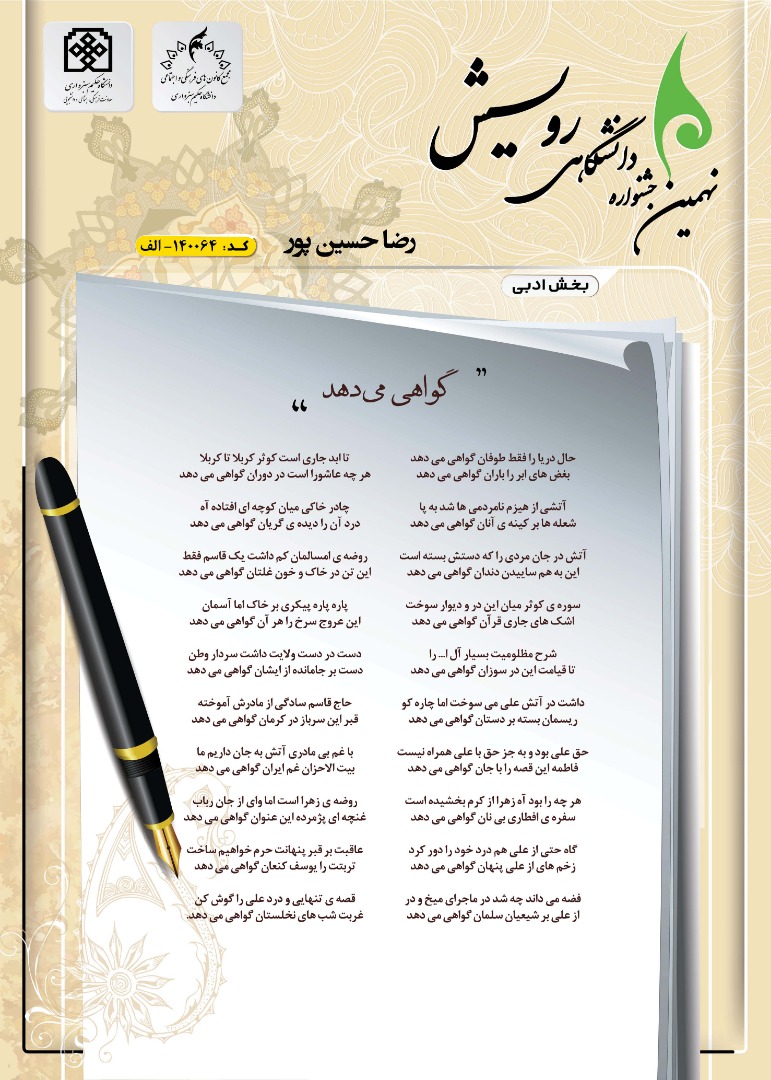 دانشگاه حکیم سبزواری
معاونت فرهنگی، اجتماعی و دانشجویی
مجمع کانون های فرهنگی و اجتماعی
دانشگاه حکیم سبزواری
نهمین جشنواره دانشگاهی رویش
رضا حسین پور
کد: ۱۴۰۰۶۴- الف
بخش ادبی
” گواهی می‌دهد “
حال دریا را فقط طوفان گواهی می دهد
بغض های ابر را باران گواهی می دهد
آتشی از هیزم نامردمی ها شد به پا
شعله ها بر کینه ی آنان گواهی می دهد
آتش در جان مردی را که دستش بسته است
این به هم ساییدن دندان گواهی می دهد
سوره ی کوثر میان این در و دیوار سوخت
اشک های جاری قرآن گواهی می دهد
شرح مظلومیت بسیار آل ا... را
تا قیامت این در سوزان گواهی می دهد
داشت در آتش علی می سوخت اما چاره کو
ریسمان بسته بر دستان گواهی می دهد
حق علی بود و به جز حق با علی همراه نیست
فاطمه این قصه را با جان گواهی می دهد
هر چه را بود آه زهرا از کرم بخشیده است
سفره ی افطاری بی نان گواهی می دهد
گاه حتی از علی هم درد خود را دور کرد
زخم های از علی پنهان گواهی می دهد
فضه می داند چه شد در ماجرای میخ و در
از علی بر شیعیان سلمان گواهی می دهد
تا ابد جاری است کوثر کربلا تا کربلا
هر چه عاشورا است در دوران گواهی می دهد
چادر خاکی میان کوچه ای افتاده آه
درد آن را دیده ی گریان گواهی می دهد
روضه ی امسالمان کم داشت یک قاسم فقط
این تن در خاک و خون غلتان گواهی می دهد
پاره پاره پیکری بر خاک اما آسمان
این عروج سرخ را هر آن گواهی می دهد
دست در دست ولایت داشت سردار وطن
دست بر جامانده از ایشان گواهی می دهد
حاج قاسم سادگی از مادرش آموخته
قبر این سرباز در کرمان گواهی می دهد
با غم بی مادری آتش به جان داریم ما
بیت الاحزان غم ایران گواهی می دهد
روضه ی زهرا است اما وای از جان رباب
غنچه ای پژمرده این عنوان گواهی می دهد
عاقبت بر قبر پنهانت حرم خواهیم ساخت
تربتت را یوسف کنعان گواهی می دهد
قصه ی تنهایی و درد علی را گوش کن
غربت شب های نخلستان گواهی می دهد.